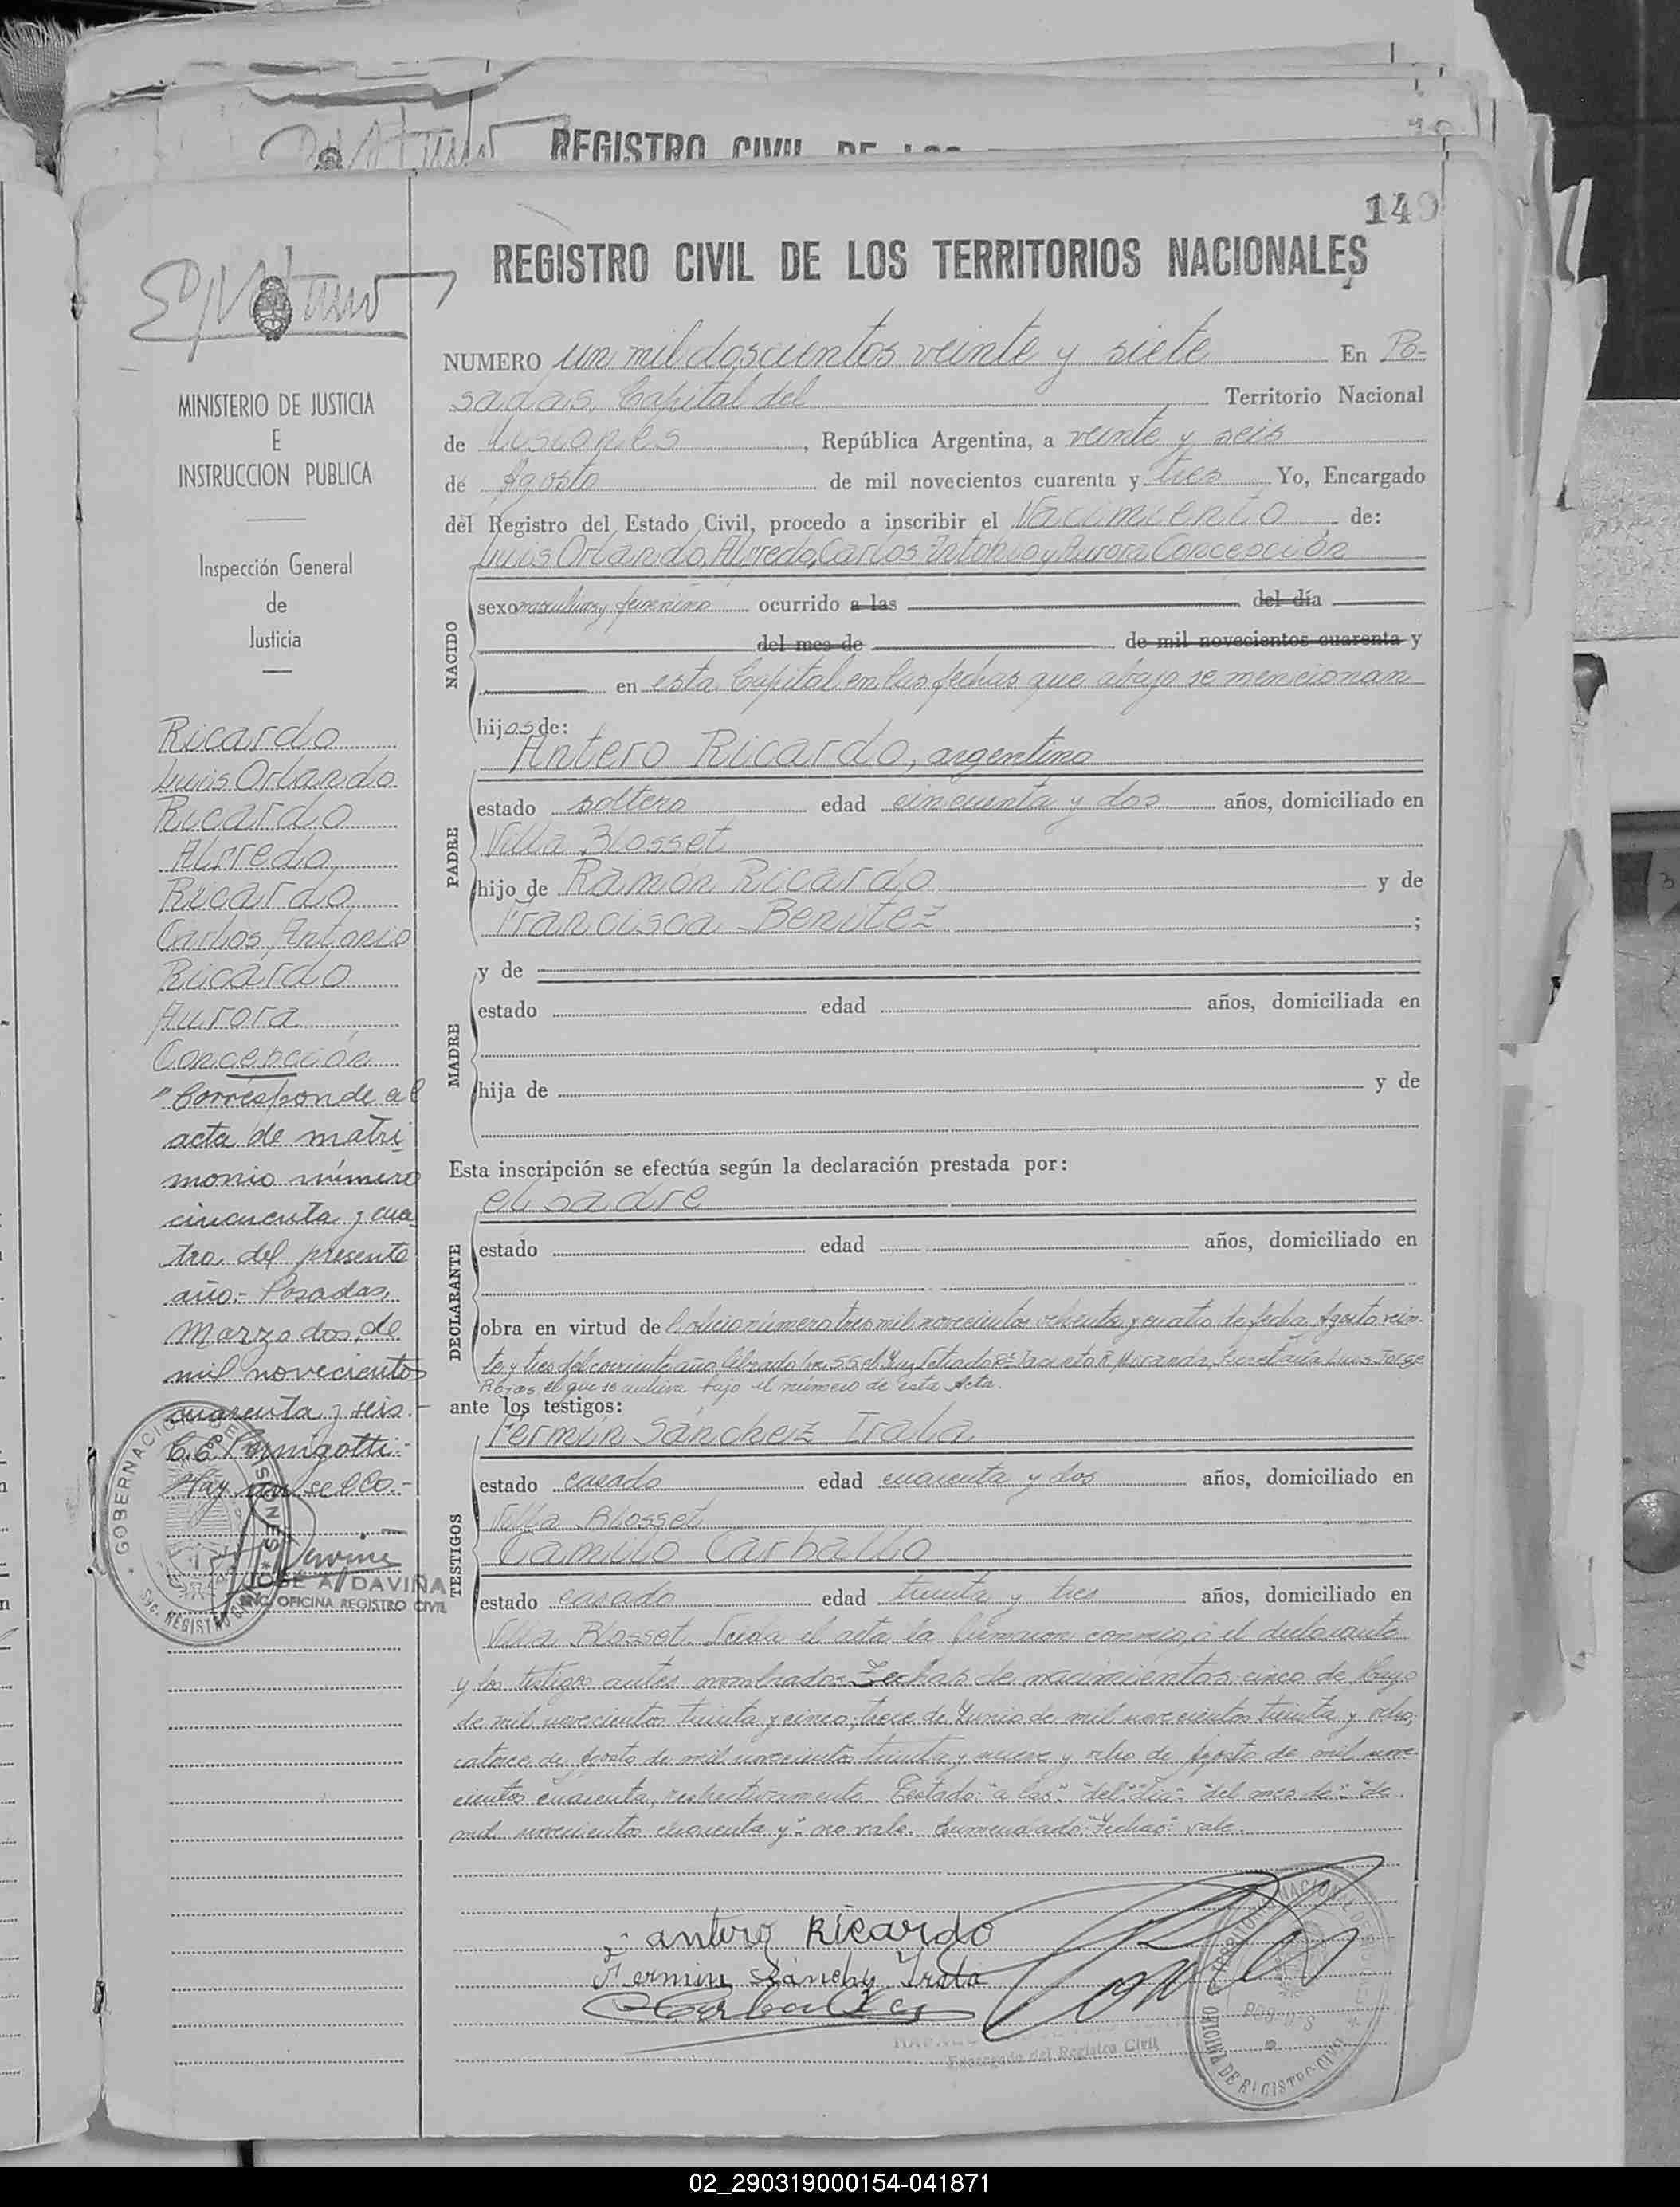 REGISTRO CIVIL DE LOS
140
REGISTRO CIVIL DE LOS TERRITORIOS NACIONALES
MINISTERIO DE JUSTICIA
E
INSTRUCCION PUBLICA
Inspección General
de
Justicia
Ricardo
Luis Orlando
Ricardo
Alfredo
Ricardo
Carlos Antonio
Ricardo
Aurora
Concepción
"Corresponde al
acta de matri
monio número
cincuenta y cua
tro del presente
año.- Posadas,
Marzo dos de
mil novecientos
cuarenta y seis.-
Hay un sello.-
GOBERNACION DE MISIONES
JOSÉ A. DAVIÑA
ENC. OFICINA REGISTRO CIVIL
NUMERO un mil doscientos veinte y siete En Po-
sadas, Capital del Territorio Nacional
de Misiones, República Argentina, a veinte y seis
de Agosto de mil novecientos cuarenta y tres Yo, Encargado
del Registro del Estado Civil, procedo a inscribir el Nacimiento de:
Luis Orlando, Alfredo, Carlos Antonio y Aurora Concepción
NACIDO
sexo masculino y femenino ocurrido a las del día
del mes de de mil novecientos cuarenta y
en esta Capital en las fechas que abajo se mencionan
hijos de:
Antero Ricardo, argentino
PADRE
estado soltero edad cincuenta y dos años, domiciliado en
Villa Blosset
hijo de Ramón Ricardo y de
Francisca Benitez ;
MADRE
y de
estado edad años, domiciliada en
hija de y de
Esta inscripción se efectúa según la declaración prestada por:
el padre
DECLARANTE
estado edad años, domiciliado en
obra en virtud de oficio número tres mil novecientos ochenta y cuatro de fecha Agosto vein-
te y tres del corriente año librado por S.S. el Juez Letrado Dr. Jacinto R. Miranda, Secretaría Luis Jorge
Rojas el que se archiva bajo el número de esta Acta.
ante los testigos:
Fermín Sánchez Irala
TESTIGOS
estado casado edad cuarenta y dos años, domiciliado en
Villa Blosset
Camilo Carballo
estado casado edad treinta y tres años, domiciliado en
Villa Blosset. Leída el acta la firmaron conmigo el declarante
y los testigos antes nombrados. Fechas de nacimientos: cinco de Mayo
de mil novecientos treinta y cinco, trece de Junio de mil novecientos treinta y ocho,
catorce de Agosto de mil novecientos treinta y nueve y ocho de Agosto de mil nove-
cientos cuarenta, respectivamente. Testado: "a las" "del día" "del mes de" "de
mil novecientos cuarenta y" no vale. Enmendado: "Fechas" vale.
Antero Ricardo
Fermin Sánchez Irala
C Carballo
Encargado del Registro Civil
OFICINA DE REGISTRO CIVIL
POSADAS
02_290319000154-041871